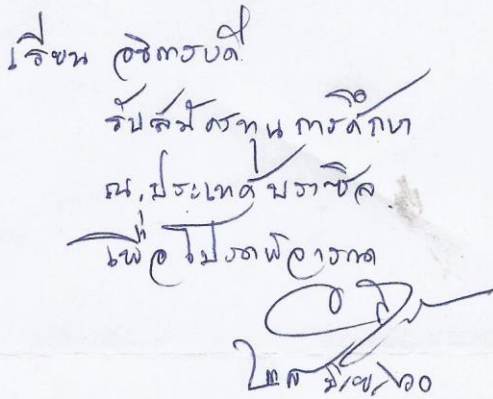 เรียน อธิการบดี
รับสมัครทุนการศึกษา
ณ.ประเทศบราซิล
เพื่อโปรดพิจารณา